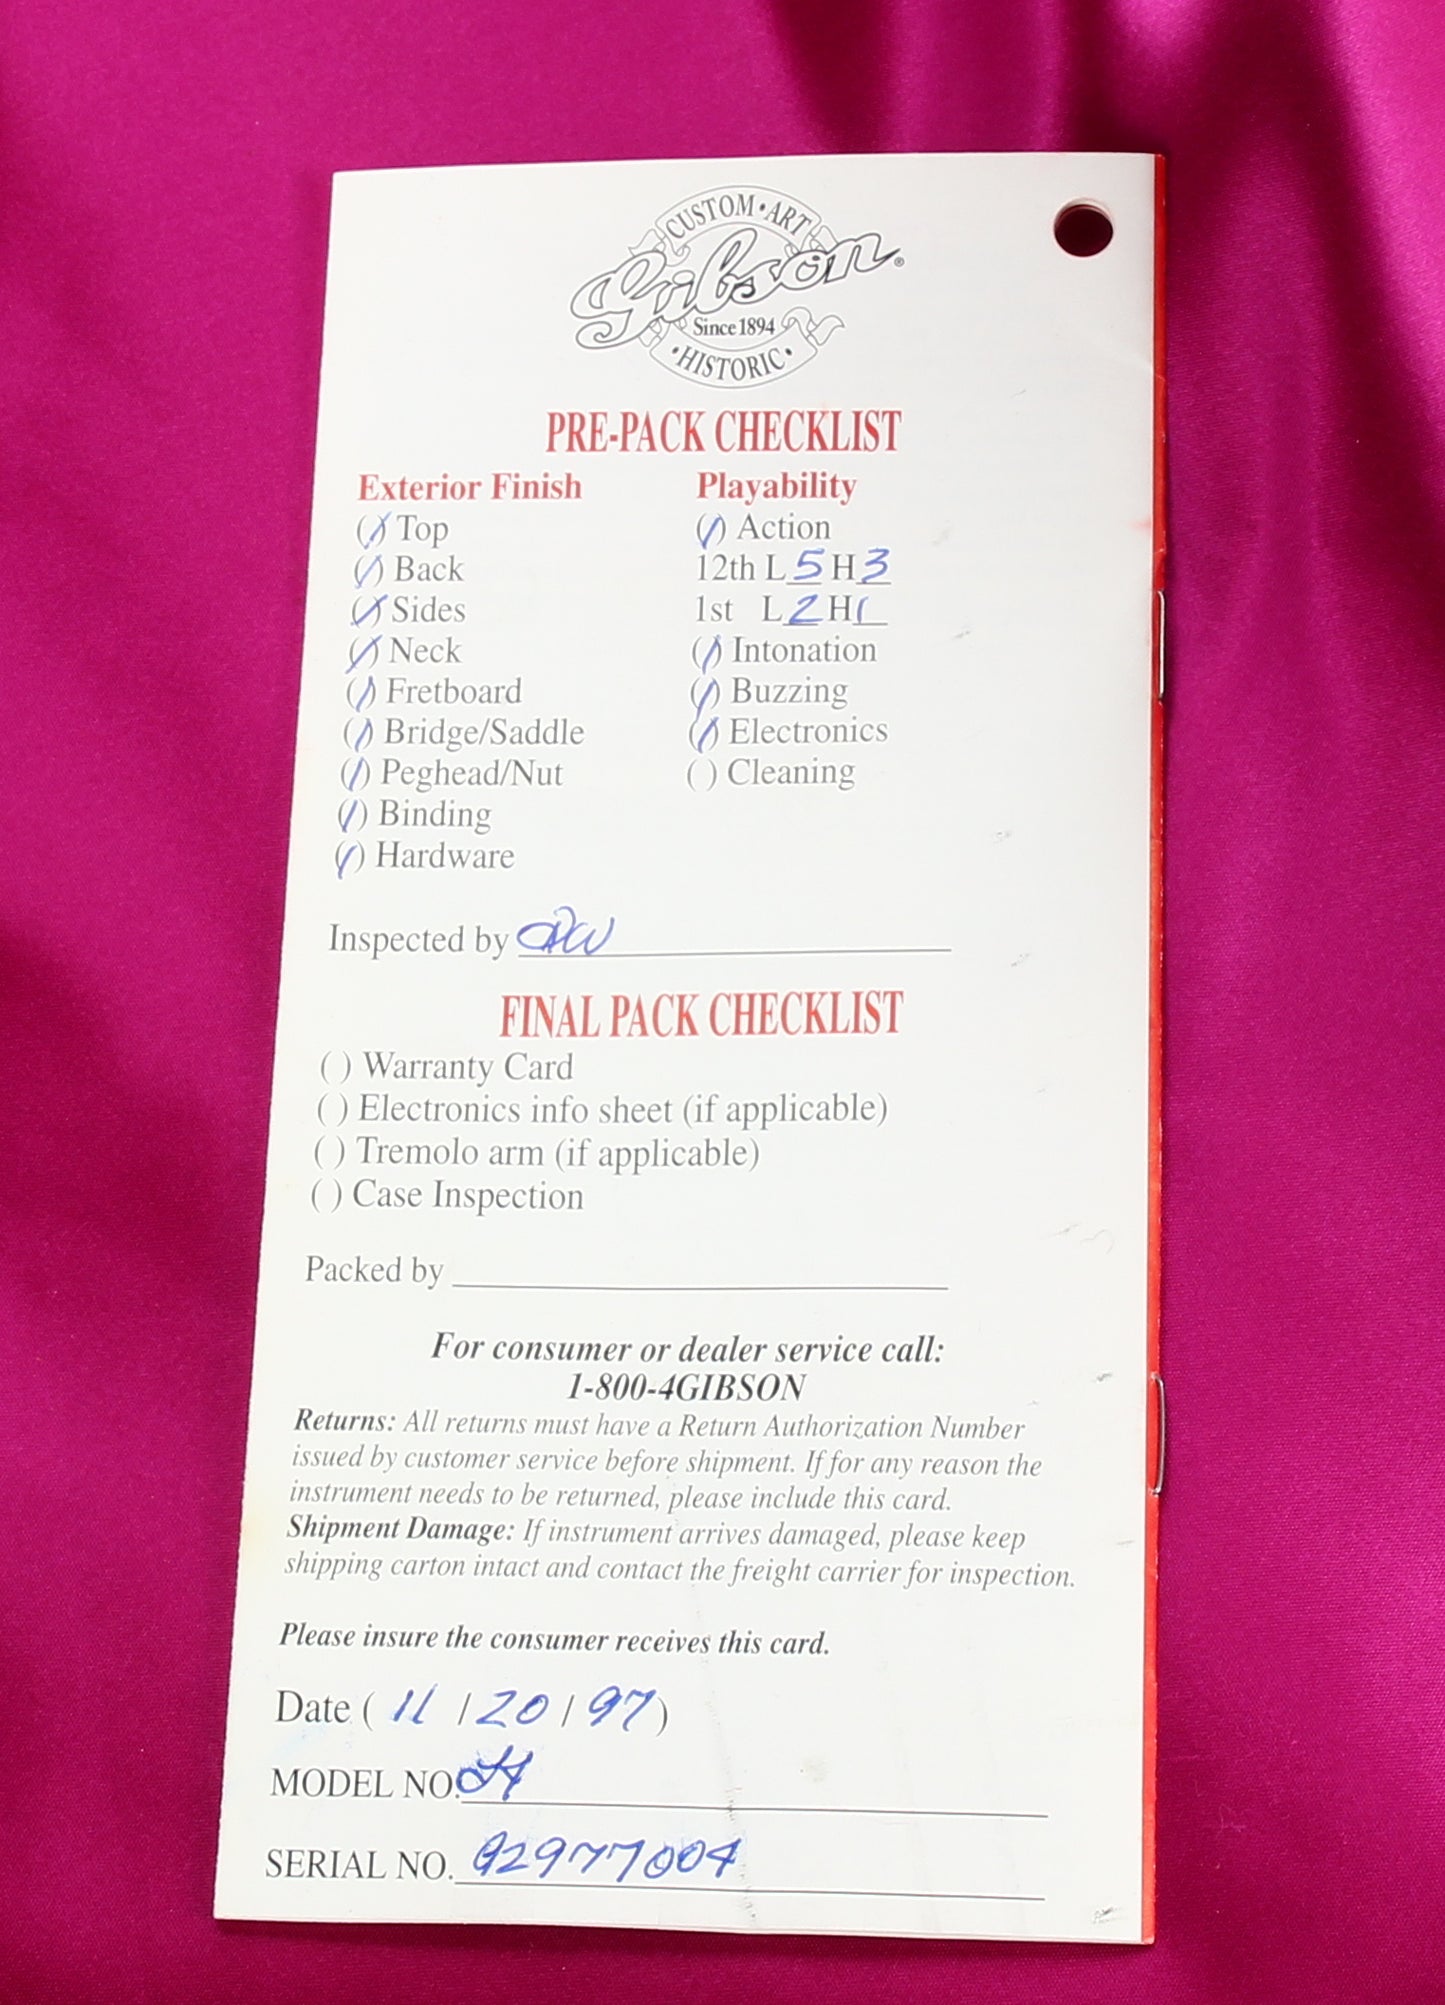 CUSTOM • ART
Gibson®
Since 1894
• HISTORIC •
PRE-PACK CHECKLIST
Exterior Finish
(/) Top
(/) Back
(/) Sides
(/) Neck
(/) Fretboard
(/) Bridge/Saddle
(/) Peghead/Nut
(/) Binding
(/) Hardware
Playability
(/) Action
12th L 5 H 3
1st L 2 H 1
(/) Intonation
(/) Buzzing
(/) Electronics
( ) Cleaning
Inspected by
FINAL PACK CHECKLIST
( ) Warranty Card
( ) Electronics info sheet (if applicable)
( ) Tremolo arm (if applicable)
( ) Case Inspection
Packed by
For consumer or dealer service call:
1-800-4GIBSON
Returns: All returns must have a Return Authorization Number
issued by customer service before shipment. If for any reason the
instrument needs to be returned, please include this card.
Shipment Damage: If instrument arrives damaged, please keep
shipping carton intact and contact the freight carrier for inspection.
Please insure the consumer receives this card.
Date ( 11 / 20 / 97 )
MODEL NO.
SERIAL NO. 92977004